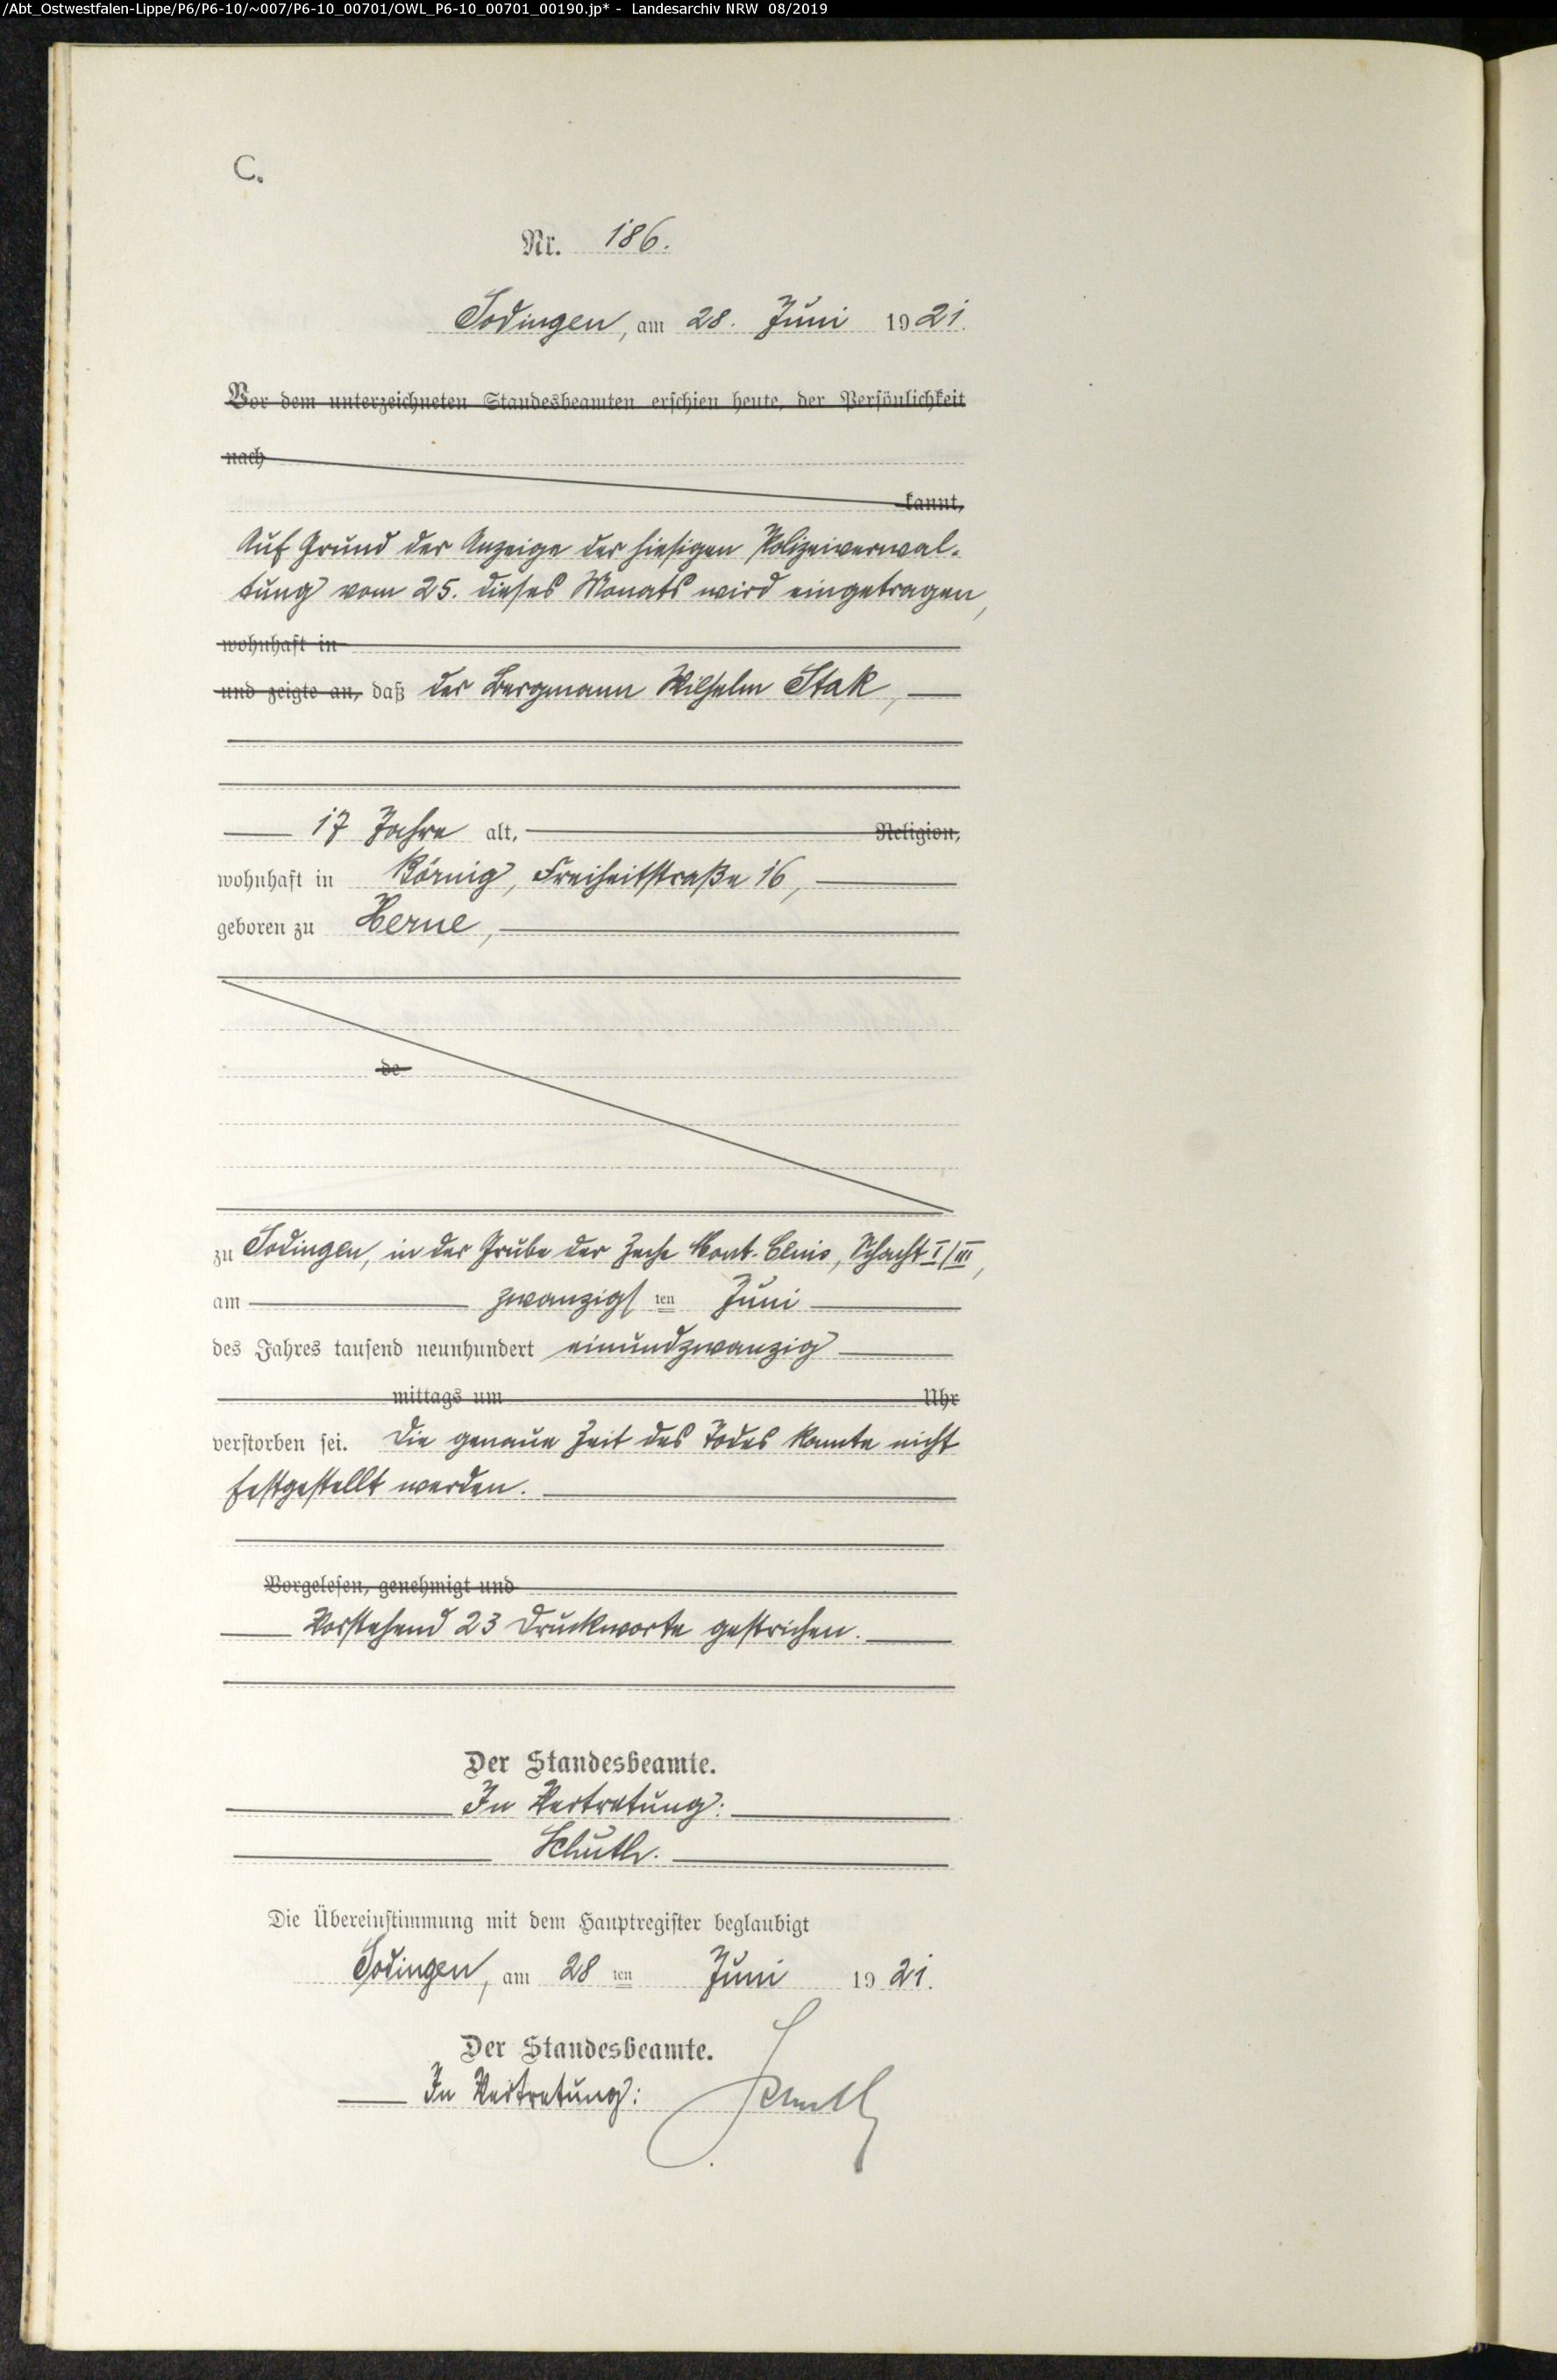 /Abt_Ostwestfalen-Lippe/P6/P6-10/~007/P6-10_00701/OWL_P6-10_00701_00190.jp* - Landesarchiv NRW 08/2019
C.
Nr. 186.
Sodingen, am 28. Juni 1921.
Vor dem unterzeichneten Standesbeamten erschien heute, der Persönlichkeit
nach
kannt,
Auf Grund der Anzeige der hiesigen Polizeiverwal-
tung vom 25. dieses Monats wird eingetragen,
wohnhaft in
und zeigte an, daß der Bergmann Wilhelm Stak,
17 Jahre alt, Religion,
wohnhaft in Börnig, Freiheitstraße 16,
geboren zu Herne,
de
zu Sodingen, in der Grube der Zeche Mont-Cenis, Schacht I/III,
am zwanzigsten Juni
des Jahres tausend neunhundert einundzwanzig
mittags um Uhr
verstorben sei. Die genaue Zeit des Todes konnte nicht
festgestellt werden.
Vorgelesen, genehmigt und
Vorstehend 23 Druckworte gestrichen.
Der Standesbeamte.
In Vertretung:
Die Übereinstimmung mit dem Hauptregister beglaubigt
Sodingen, am 28 ten Juni 1921.
Der Standesbeamte.
In Vertretung: